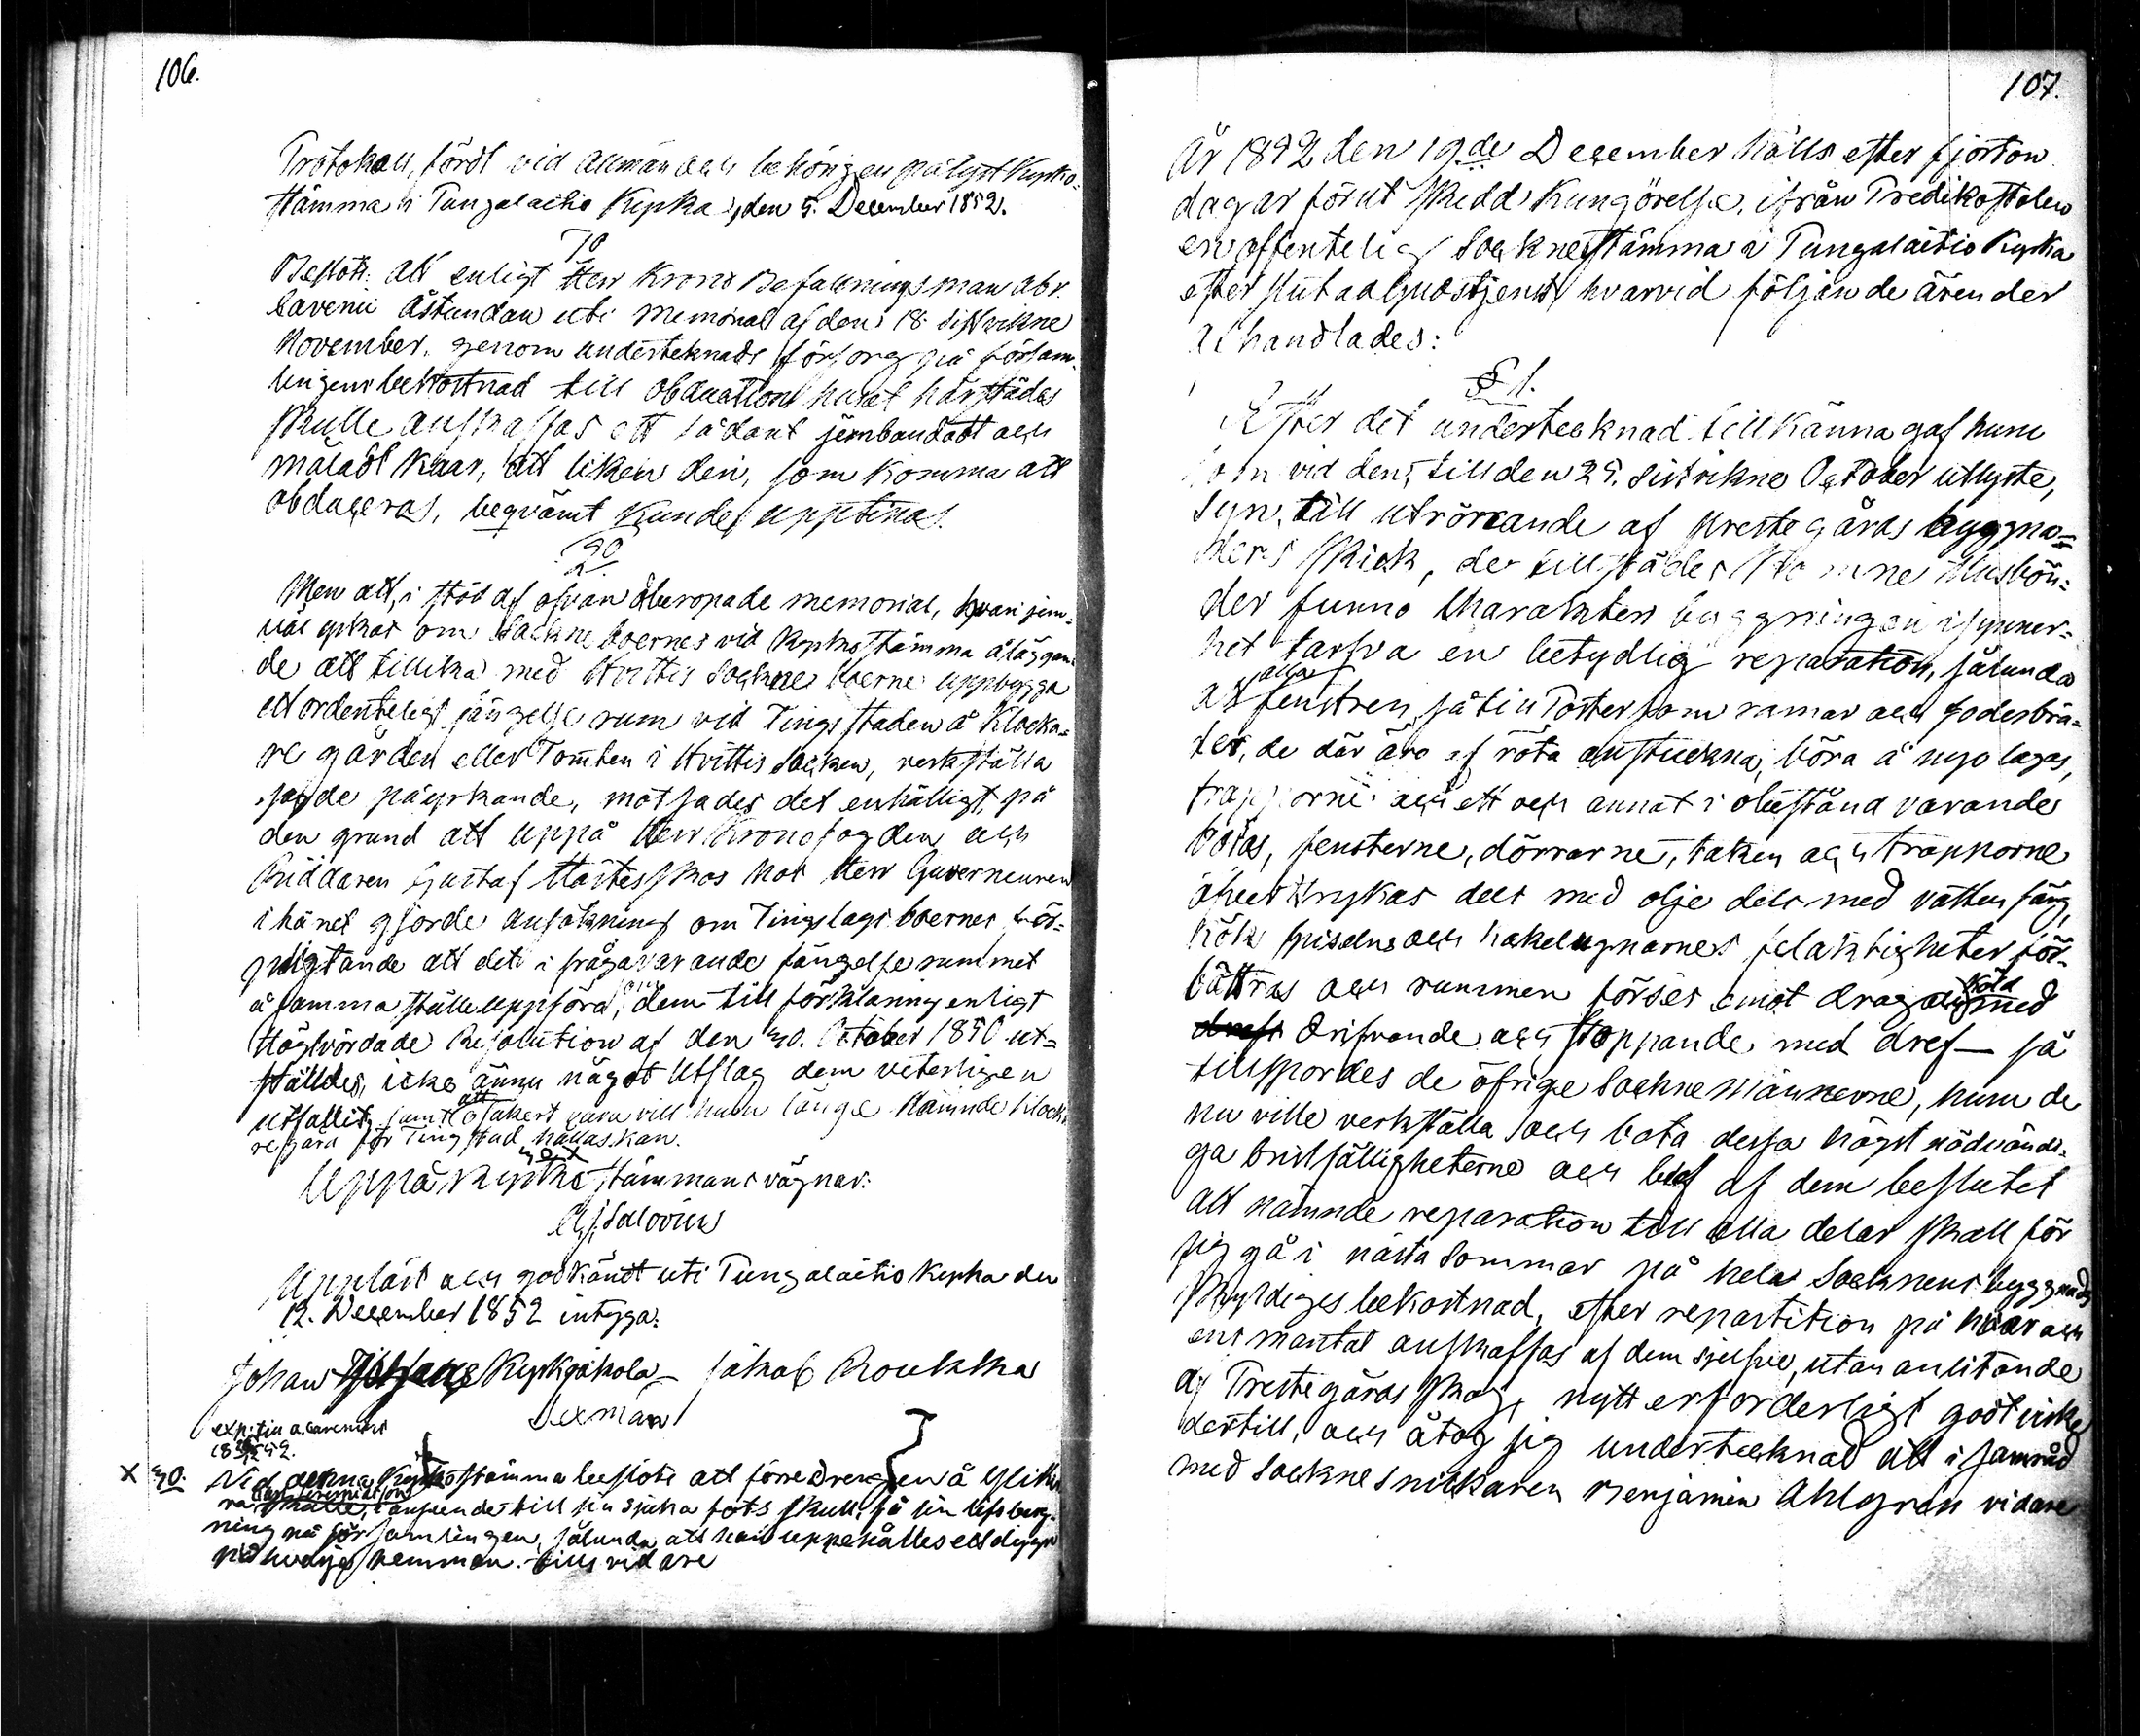 106.
Protokoll, fördt vid allmän och behörigen pålyst Kyrko-
stämma i Pungalaitio Kyrka, den 5. December 1852.
1o
Beslöts: att enligt Herr Krono Befallningsman Abr.
Cavenii åstundan uti Memorial af den 18 sistvikne
November, genom undertecknads försorg på försam-
lingens bekostnad till obduktions huset härstädes
skulle anskaffas ett sådant jernbandadt och
måladt kaar, att liken deri, som komma att
obduceras, beqvämt kunde upptinas.
2o
Men att, i stöd af ofvan åberopade memorial, hvari jem-
väl yrkas om Sockneboernes vid Kyrkostämma åläggan-
de att tillika med Hvittis Sockne boerne uppbygga
ett ordenteligt fängelse rum vid Tingsstaden å Klocka-
re gården eller Tomten i Hvittis Socken, verkställa
sagde påyrkande, motsades det enhälligt, på
den grund att uppå Herr Kronofogden och
Riddaren Gustaf Hästeskos hos Herr Guverneuren
i länet gjorde ansökning om Tingslags boernes för-
pligtande att det i fråga varande fängelse rummet
å samma ställe uppföra, dem till förklaring enligt
Höglvördade Resolution af den 30. October 1850 ut-
ställdes, icke ännu något Utslag dem veterligen
utfallit, samt att osäkert vara vill huru länge nämnde Klocka-
regård för Tingstad hållas kan.
3o X
Uppå Kyrko stämmans vägnar:
G. J. Salovius
Uppläst och godkändt uti Pungalaitio Kyrka den
12. December 1852 intyga:
Johan Kyrkjäkola Jakob Roukka
Sexman
exp. till A. Cavenius
X 3o. Vid denna Kyrkostämma beslöts att förre drengen å
skulle, i anseende till sin sjuka fots skull, få sin lifsberg-
ning på församlingen, sålunda att han uppehålles ett dygn
på hvarje hemman tills vidare
107.
År 1852 den 19de December hölls efter fjorton
dagar förut skedd Kungörelse, ifrån Predikostolen
en offentelig Socknestämma i Pungalaitio Kyrka
efter slutad Gudstjenst, hvarvid följande ärender
afhandlades:
§ 1.
Efter det undertecknad tillkänna gaf huru
som vid den, till den 25. sistvikne October utlyste,
syn, till utrönande af Prestegårds byggna-
dernes skick, de tillstädes komne Husbön-
der funno Charakters byggningen i synner-
het tarfva en betydlig reparation, sålunda
att alla fenstren såtill Poster som ramar och foderbrä-
der, de där äro af röta anstuckna, böra å nyo lagas,
trapporne och ett och annat i olivstånd varande
botas, fensterne, dörrarne, taken och trapporne
åhvitstrykas dels med olje dels med vatten färg,
köks spiselns och kakelugnarnes felaktigheter för-
bättras och rummen förses emot drag och köld med
drifvande och stoppande med dref — så
tillspordes de öfrige Sockne Männerne, huru de
nu ville verkställa och bota dessa högst nödvändi-
ga bristfälligheterne och blef af dem beslutet
att nämnde reparation till alla delar skall för
sig gå i nästa Sommar på hela Socknens byggnads
skyldiges bekostnad, efter repartition på hvar och
ens mantal anskaffas af dem sjelfve, utan anlitande
af Prestegårds skog, nytt erforderligt godt virke
dertill, och åtog sig undertecknad att i samråd
med socknesnickaren Benjamin Ahlgrén vidare